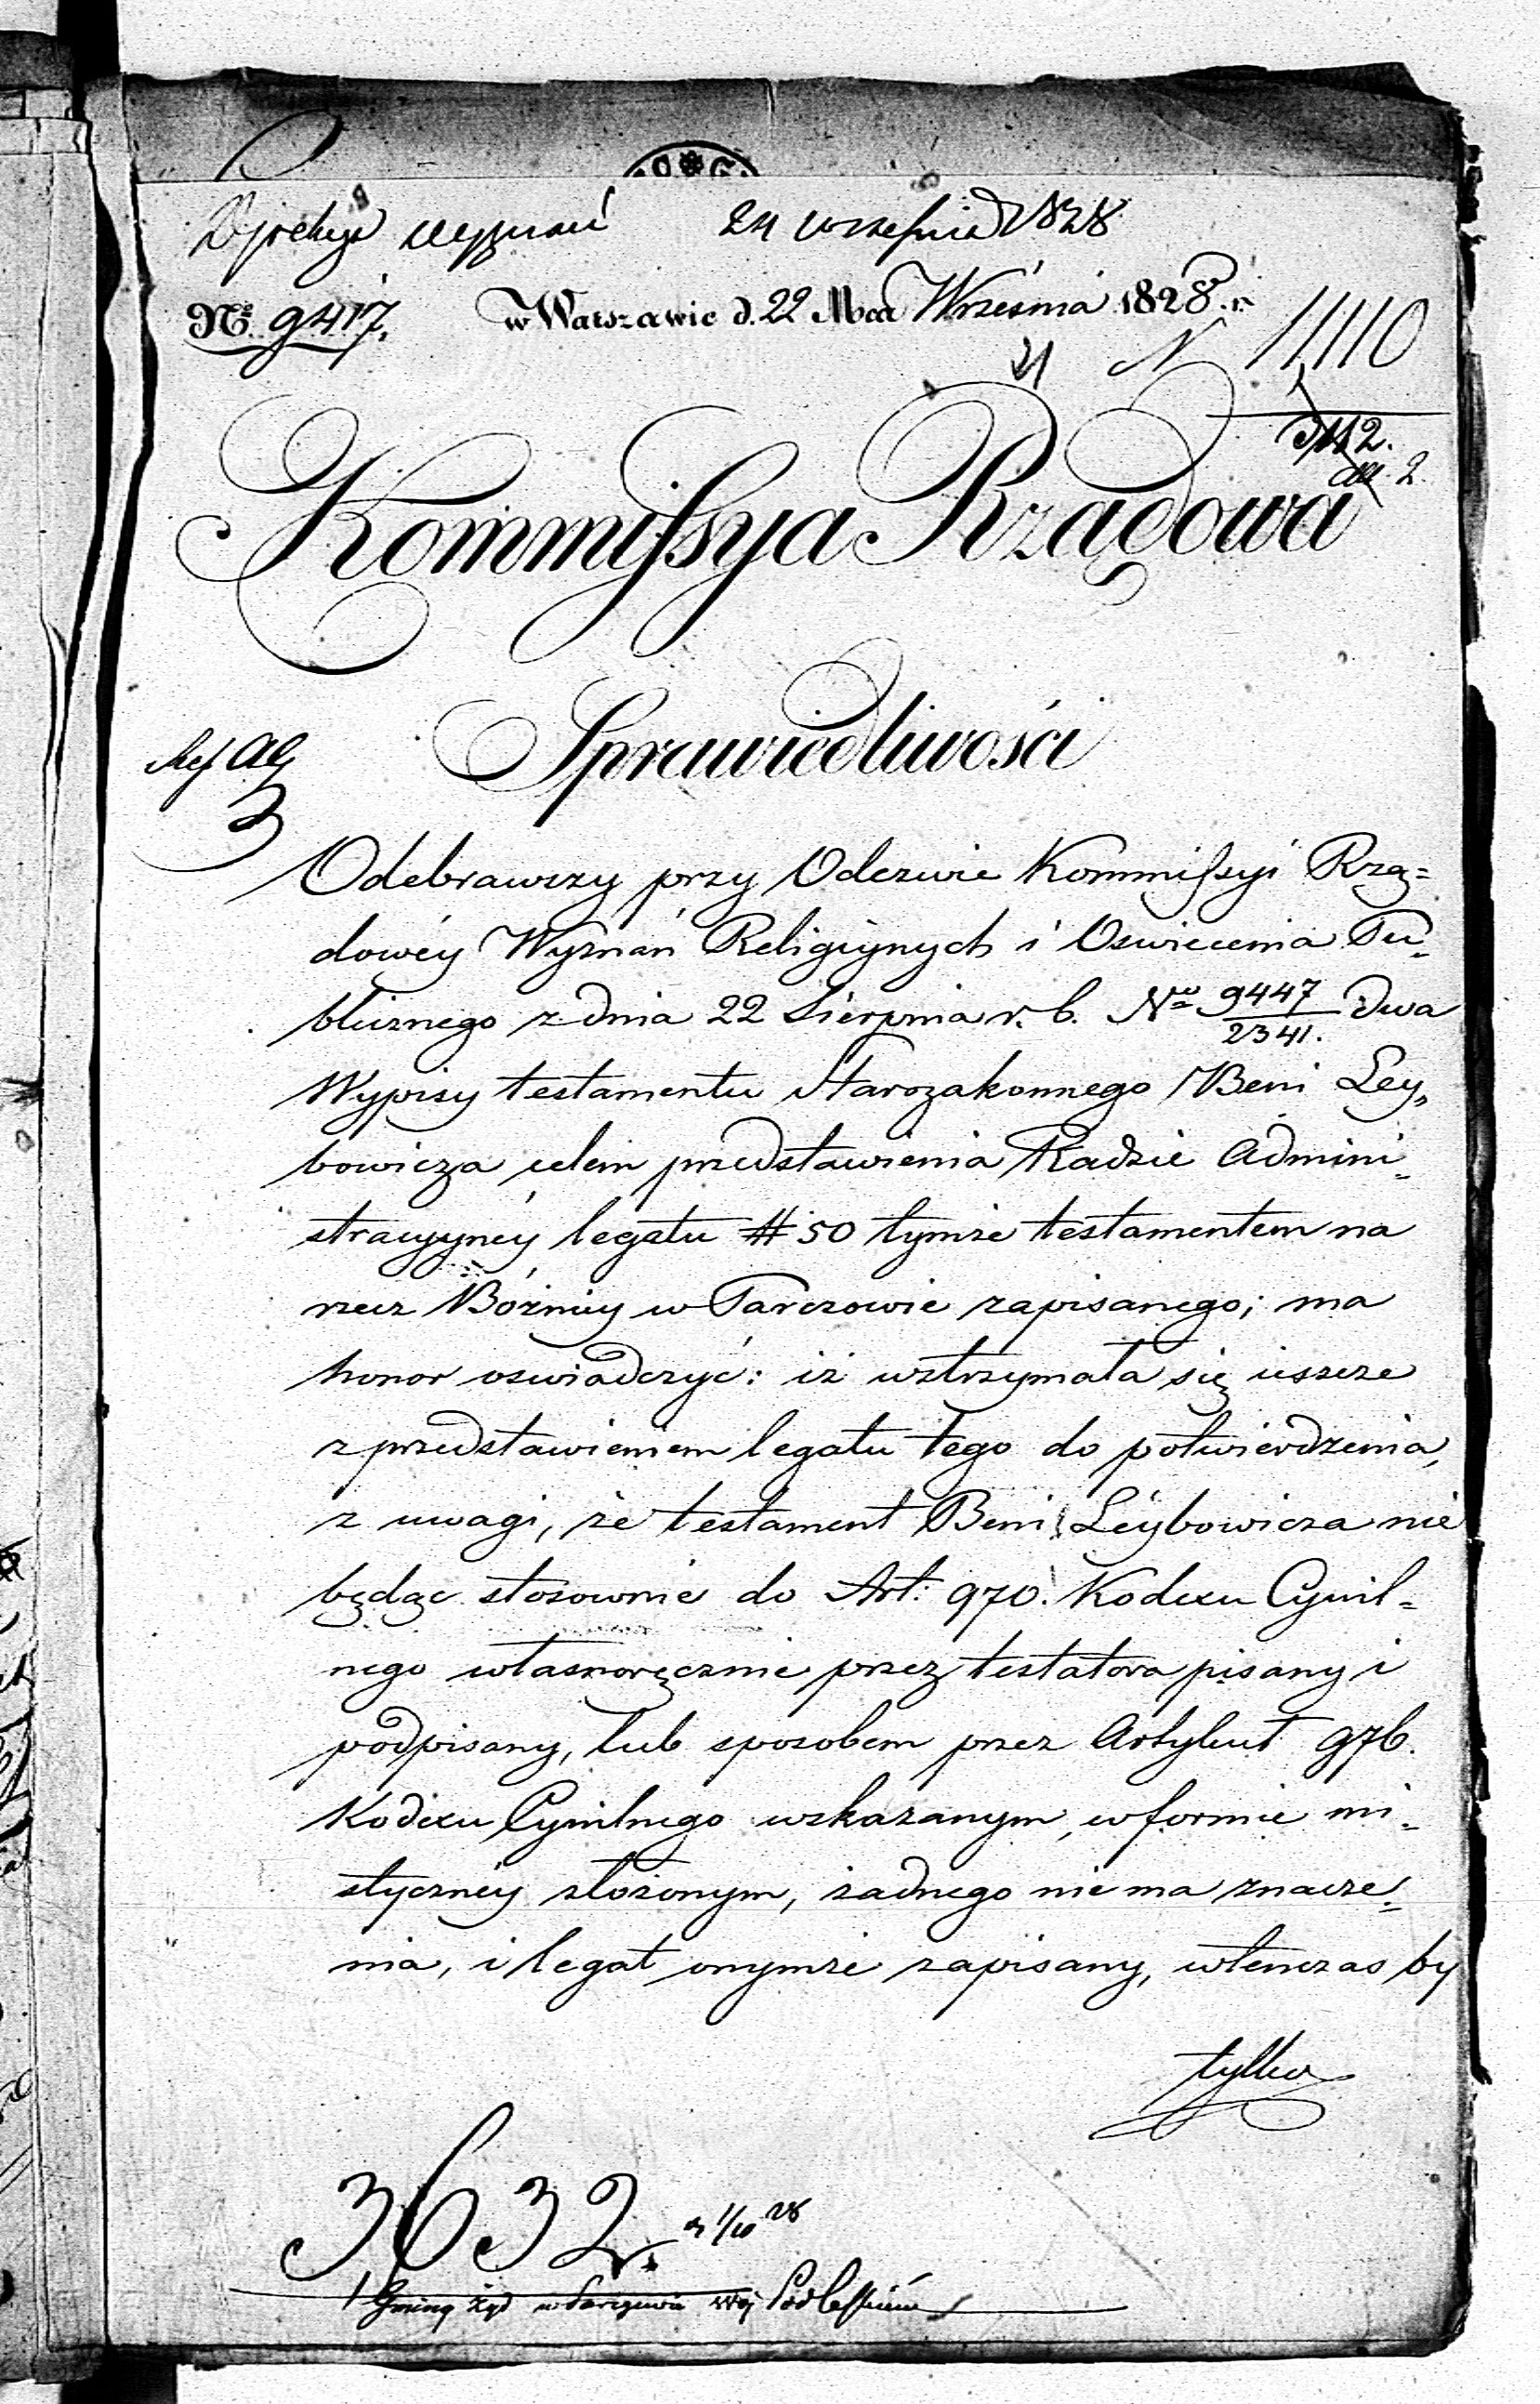 Dyrekcyi Wyznań 24 Września 1828
No. 9417. w Warszawie d. 22 Mca Września 1828 r.
N 11110
Kommissya Rządowa
Sprawiedliwości
Odebrawszy przy Odezwie Kommissyi Rzą=
dowéy Wyznań Religiynych i Oswiecenia Pu=
blicznego z dnia 22 Sierpnia r. b. No 9447/2341. dwa
Wypisy testamentu Starozakonnego Beni Ley„
bowicza celem przedstawienia Radzie Admini=
stracyyney legatu # 50 tymże testamentem na
rzecz Bóżnicy w Parczowie zapisanego; ma
honor oswiadczyć: iż wstrzymała się ieszcze
z przedstawieniem legatu tego do potwierdzenia,
z uwagi, że testament Beni Leybowicza nie
będąc stosownie do Art: 970. Kodexu Cywil=
nego własnoręcznie przez testatora pisany i
podpisany, lub sposobem przez Artykuł 976.
Kodexu Cywilnego wskazanym, w formie mi=
styczney złożonym, żadnego nie ma znacze=
nia, i legat onymże zapisany, wtenczas by
tylko
3632. 1/10 28
Gminy Żyd w Parczewie Woj Podlaskiem